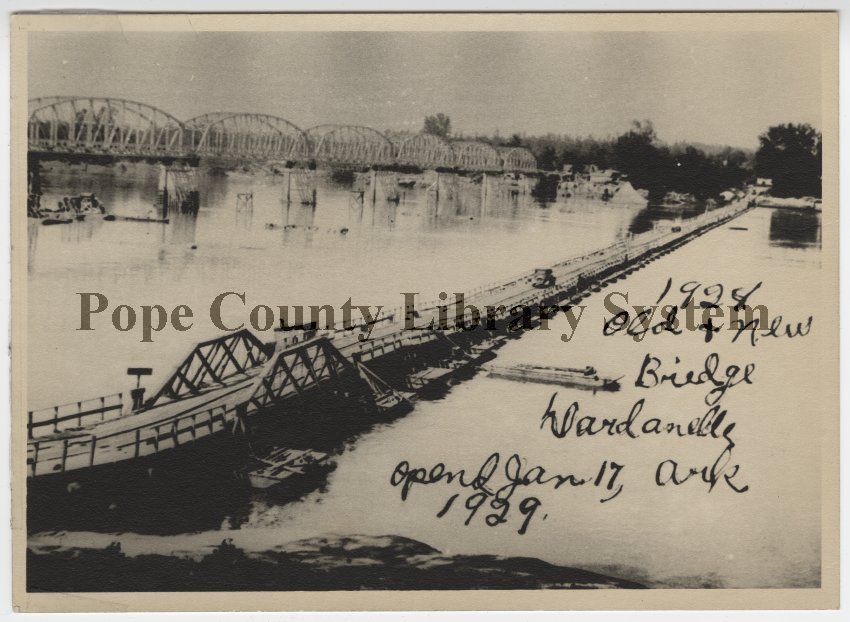 Pope County Library System
1928
Old + New
Bridge
Dardanelle
Ark
opend Jan. 17,
1929.